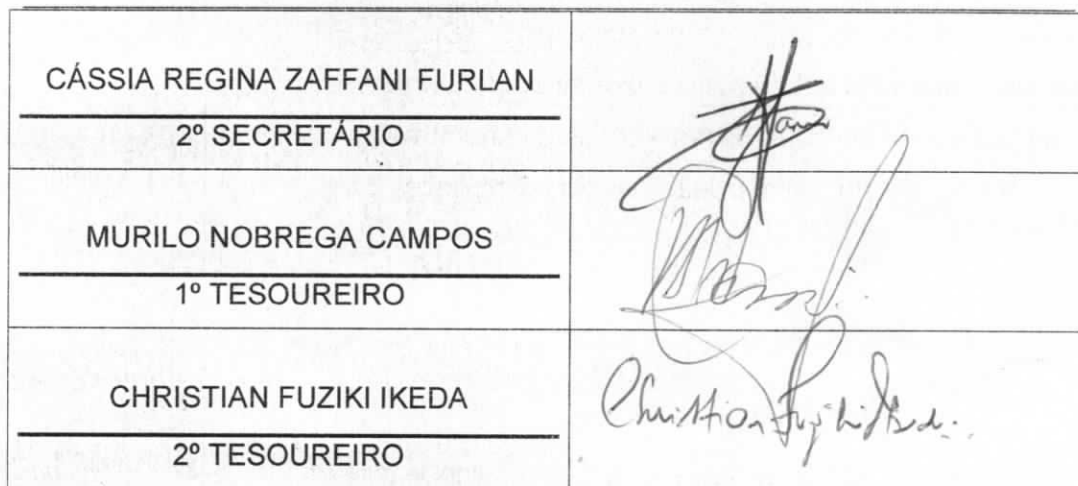 CÁSSIA REGINA ZAFFANI FURLAN
2º SECRETÁRIO
MURILO NOBREGA CAMPOS
1º TESOUREIRO
CHRISTIAN FUZIKI IKEDA
Christian Fuziki Ikeda.
2º TESOUREIRO